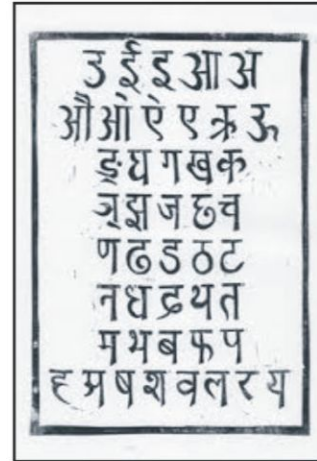 उ ई इ आ अ
औ ओ ऐ ए ऋ ऊ
ङ घ ग ख क
ञ झ ज छ च
ण ढ ड ठ ट
न ध द थ त
म भ ब फ प
ह स ष श व ल र य